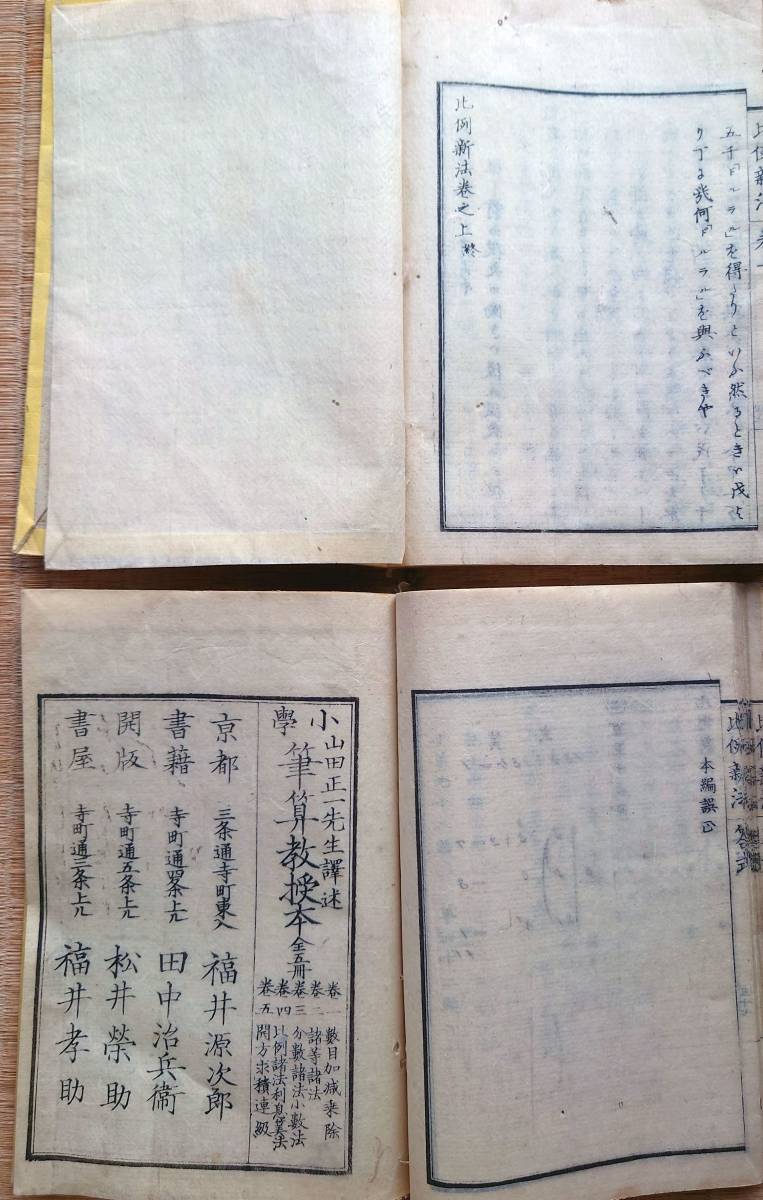 五千「ドルラル」を得たりといふ然るときハ戌よ
り丁に幾何「ドルラル」を與ふべきや
比例新法巻之上終
本編誤正
山田正一先生譯述
小學筆算教授本 全五冊
巻一 數目加減乗除
巻二 諸等諸法
巻三 分數諸法小數法
巻四 比例諸法利息算法
巻五 開方求積連級
京都 三条通寺町東入 福井源次郎
書籍 寺町通四条上ル 田中治兵衞
開版 寺町通五条上ル 松井榮助
書屋 寺町通三条上ル 福井孝助